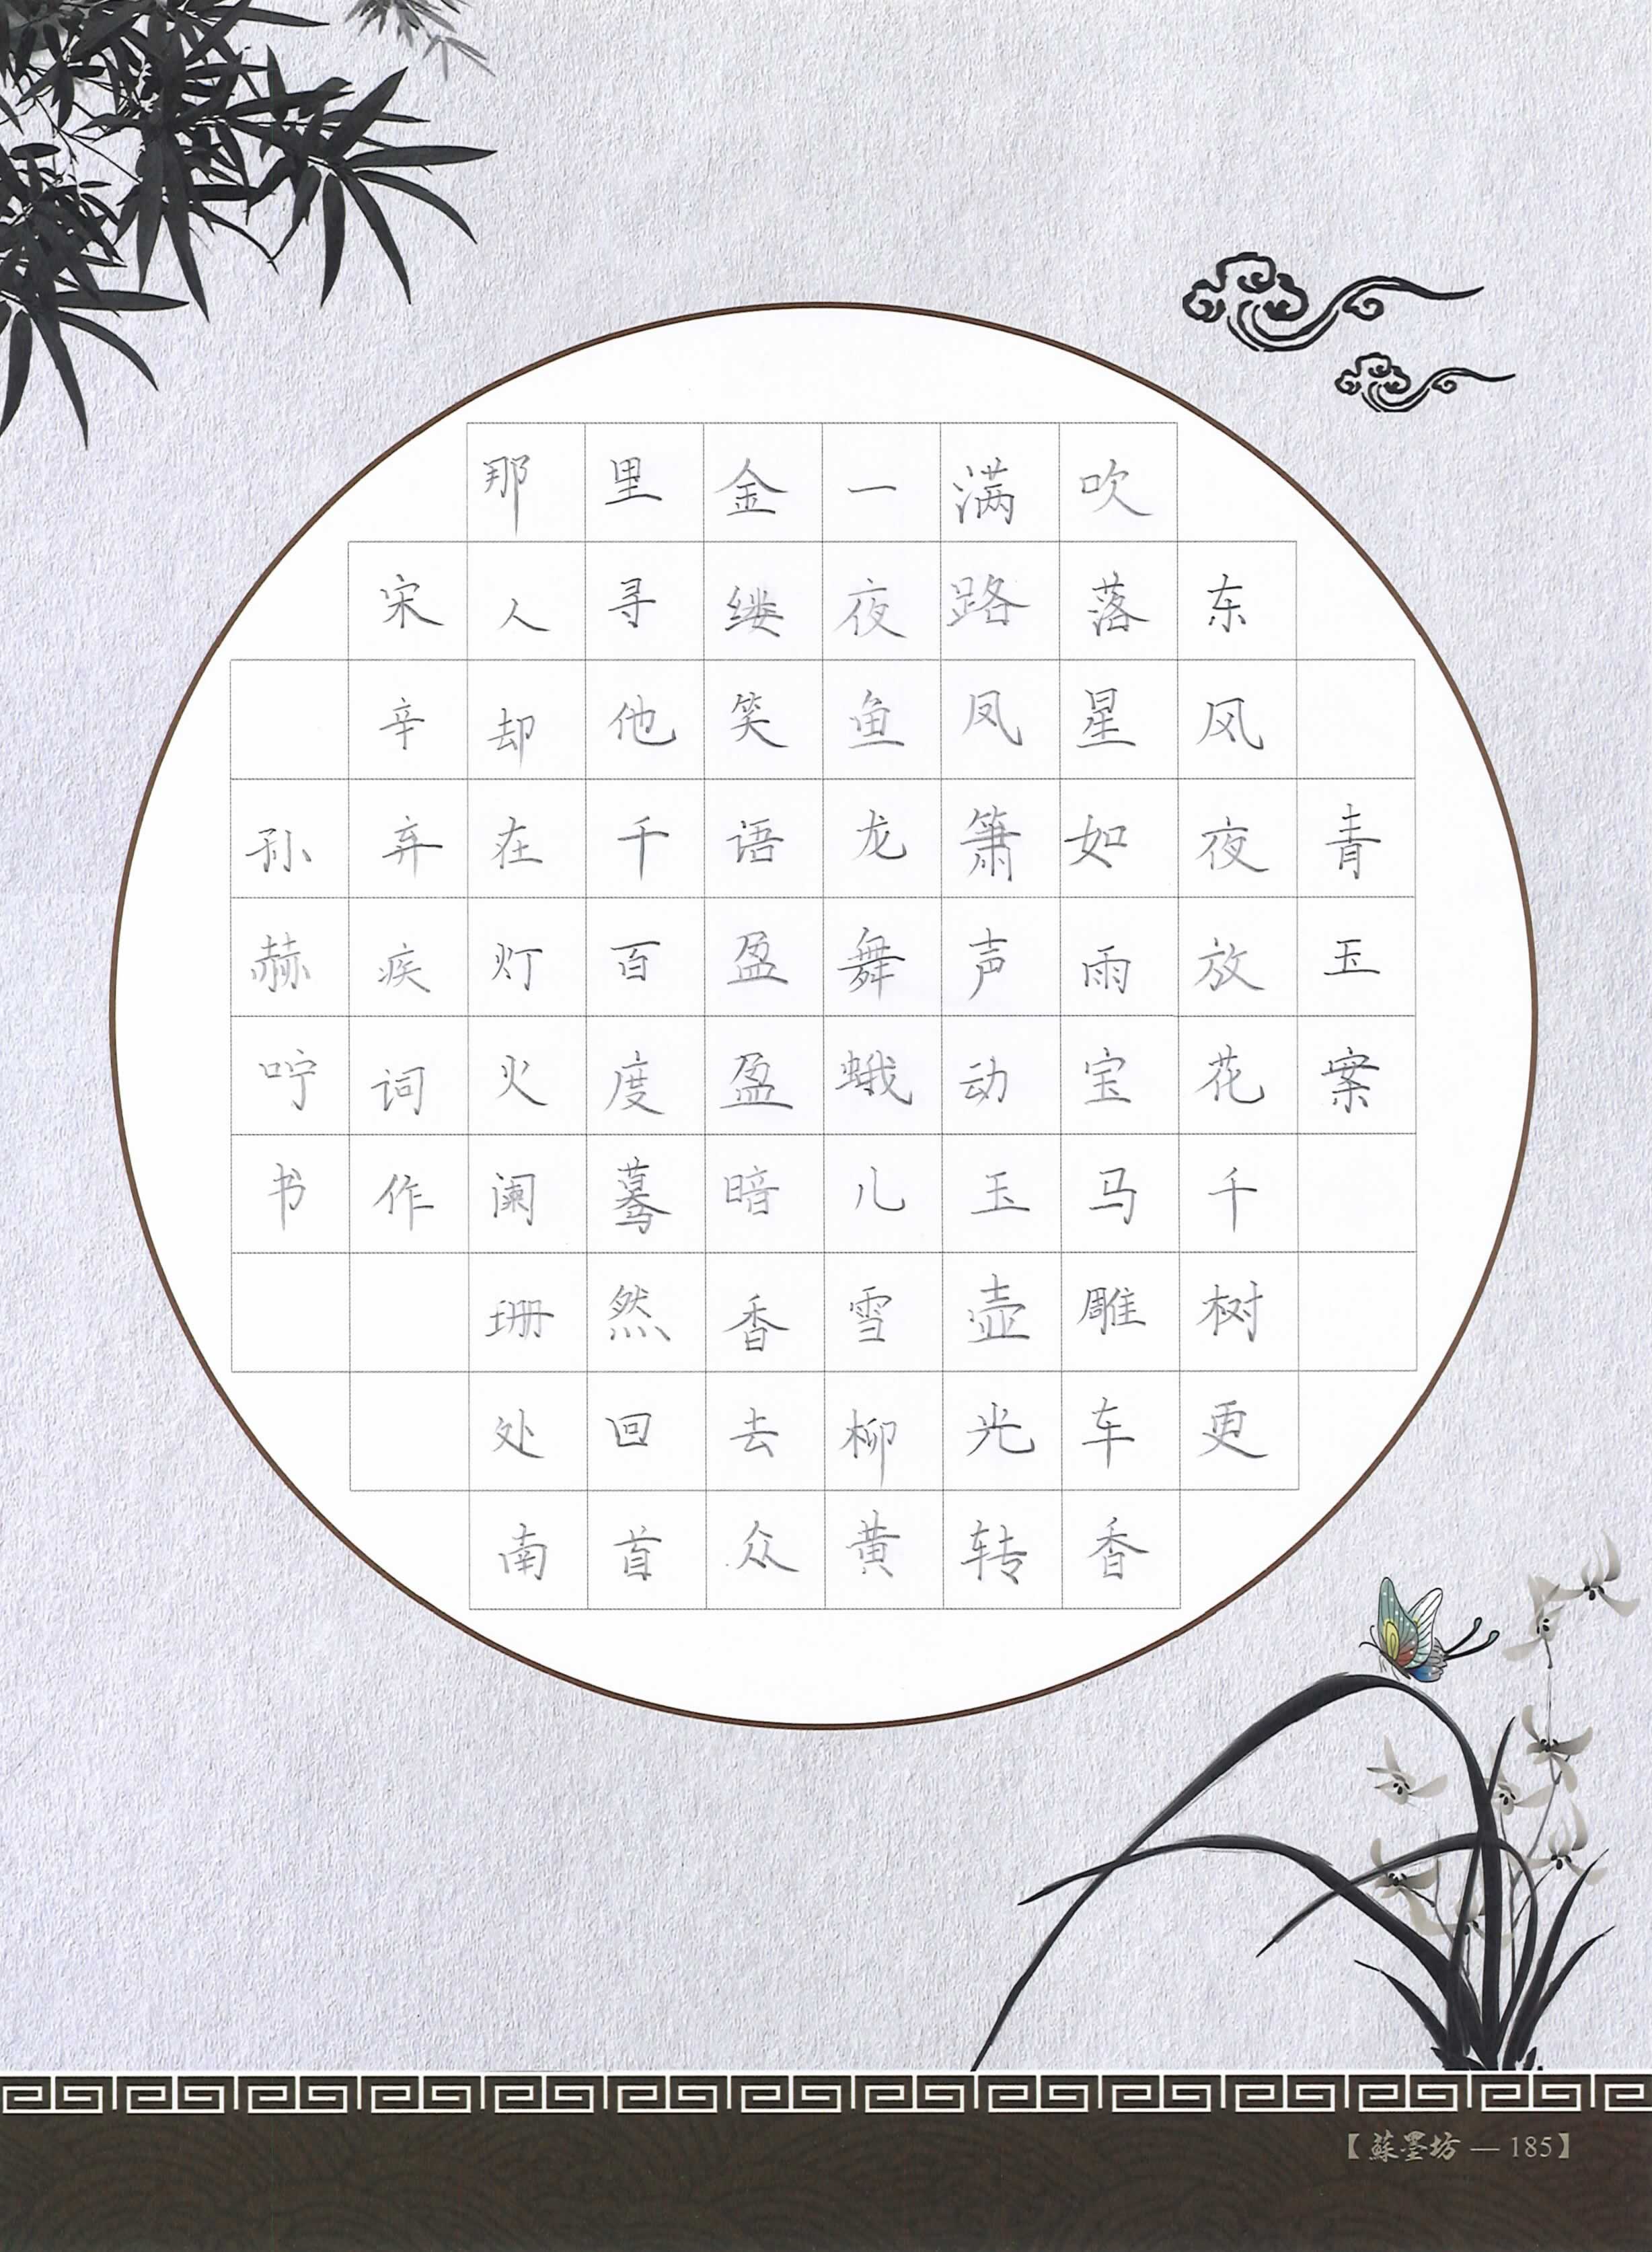 青玉案
东风夜放花千树更
吹落星如雨宝马雕车香
满路凤箫声动玉壶光转
一夜鱼龙舞蛾儿雪柳黄
金缕笑语盈盈暗香去众
里寻他千百度蓦然回首
那人却在灯火阑珊处南
宋辛弃疾词作
孙赫咛书
【蘇墨坊 — 185】